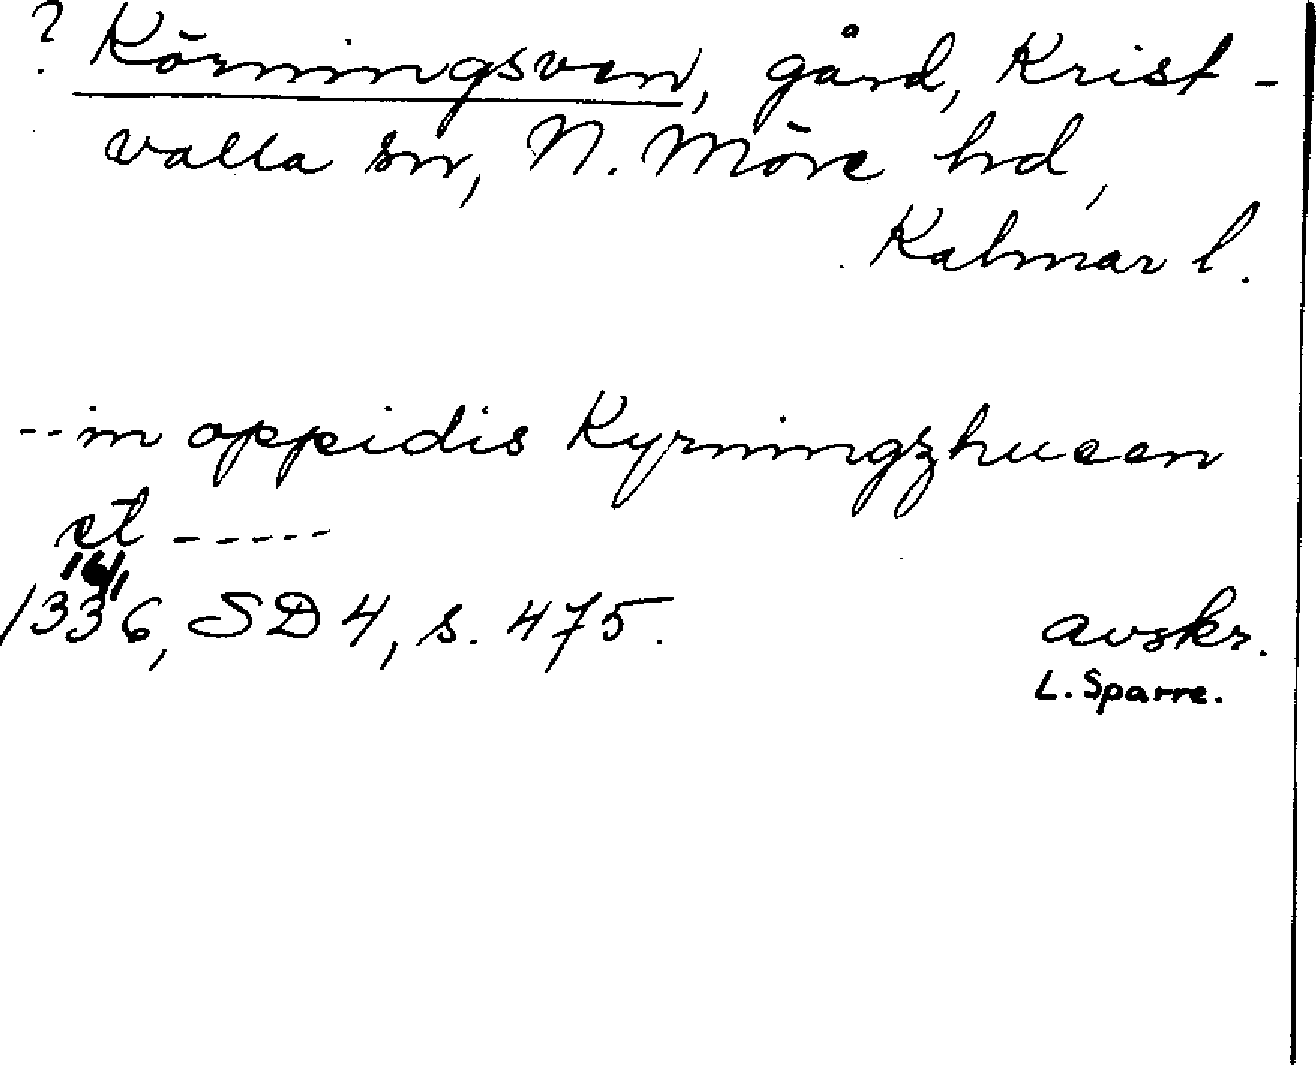 ? Körningsven, gård, Krist-
valla sn, N. Möre hd,
Kalmar l.
--in oppidis Kyrningzhueen
et -----
1336, SD 4, s. 475.
avskr.
L. Sparre.